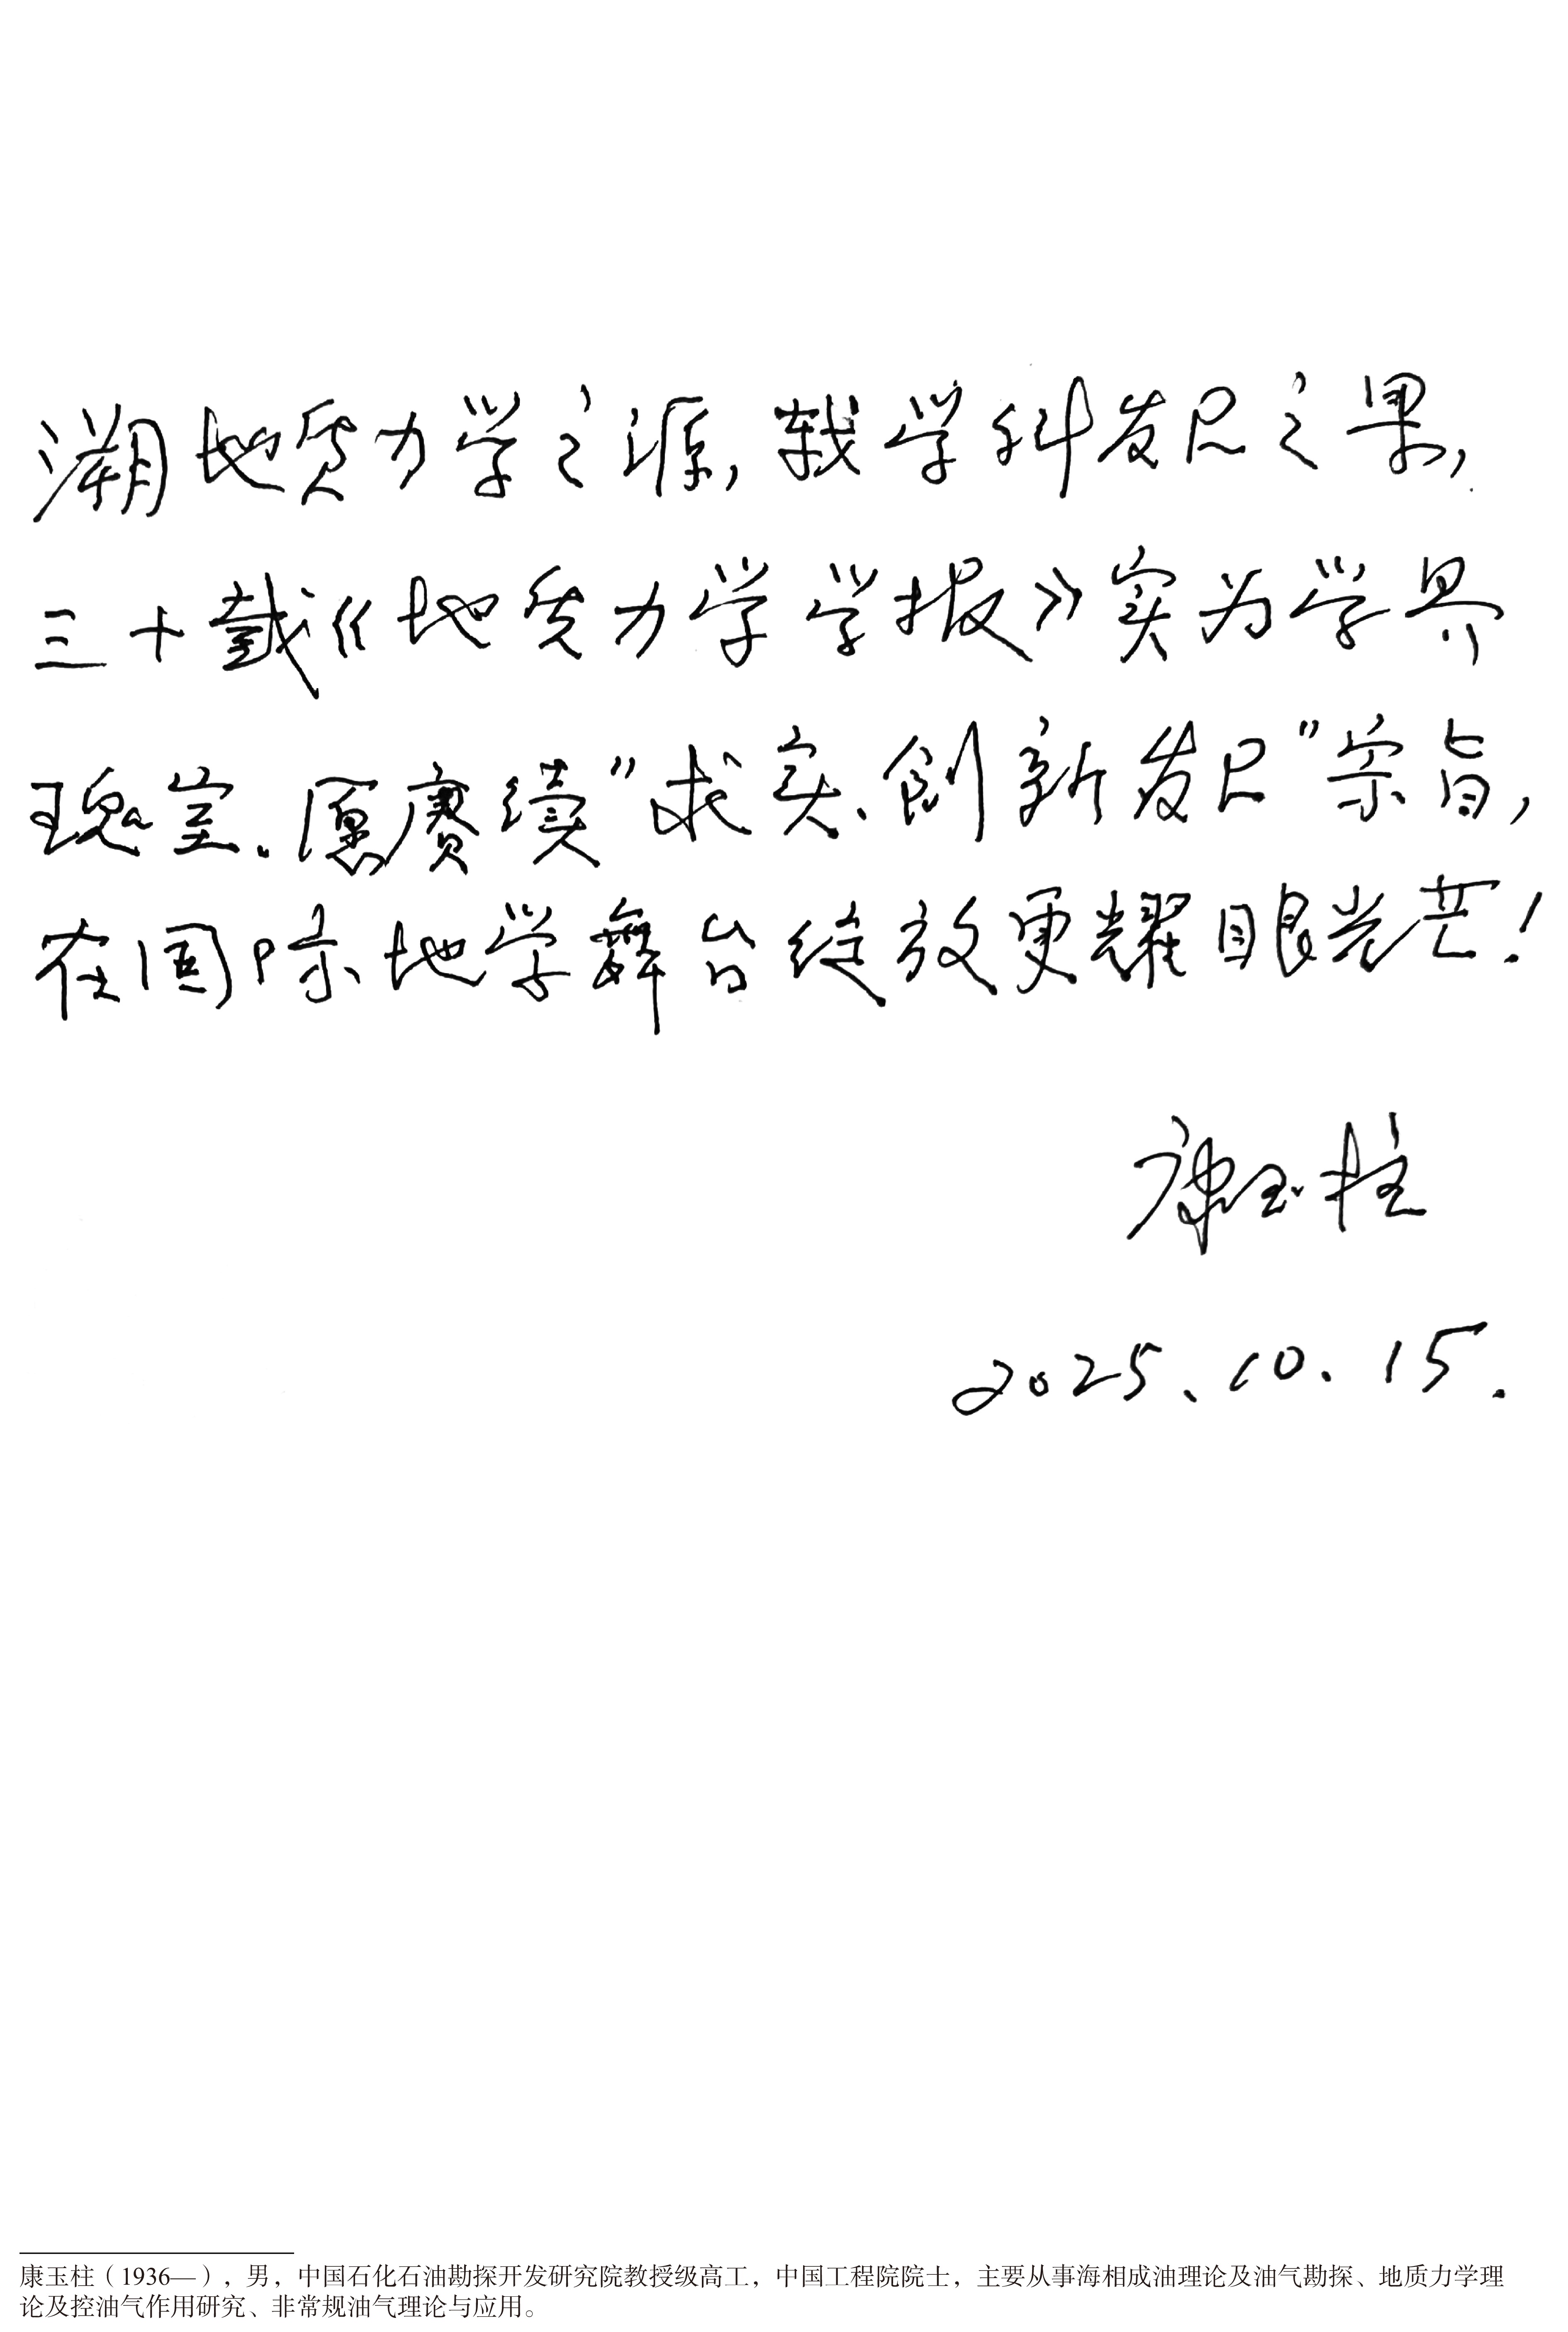 溯地质力学之源,载学科发展之果,
三十载《地质力学学报》实为学界
瑰宝.愿赓续"求实、创新发展"宗旨,
在国际地学舞台绽放更耀眼光芒!
康玉柱
2025、10.15.
康玉柱（1936—），男，中国石化石油勘探开发研究院教授级高工，中国工程院院士，主要从事海相成油理论及油气勘探、地质力学理
论及控油气作用研究、非常规油气理论与应用。